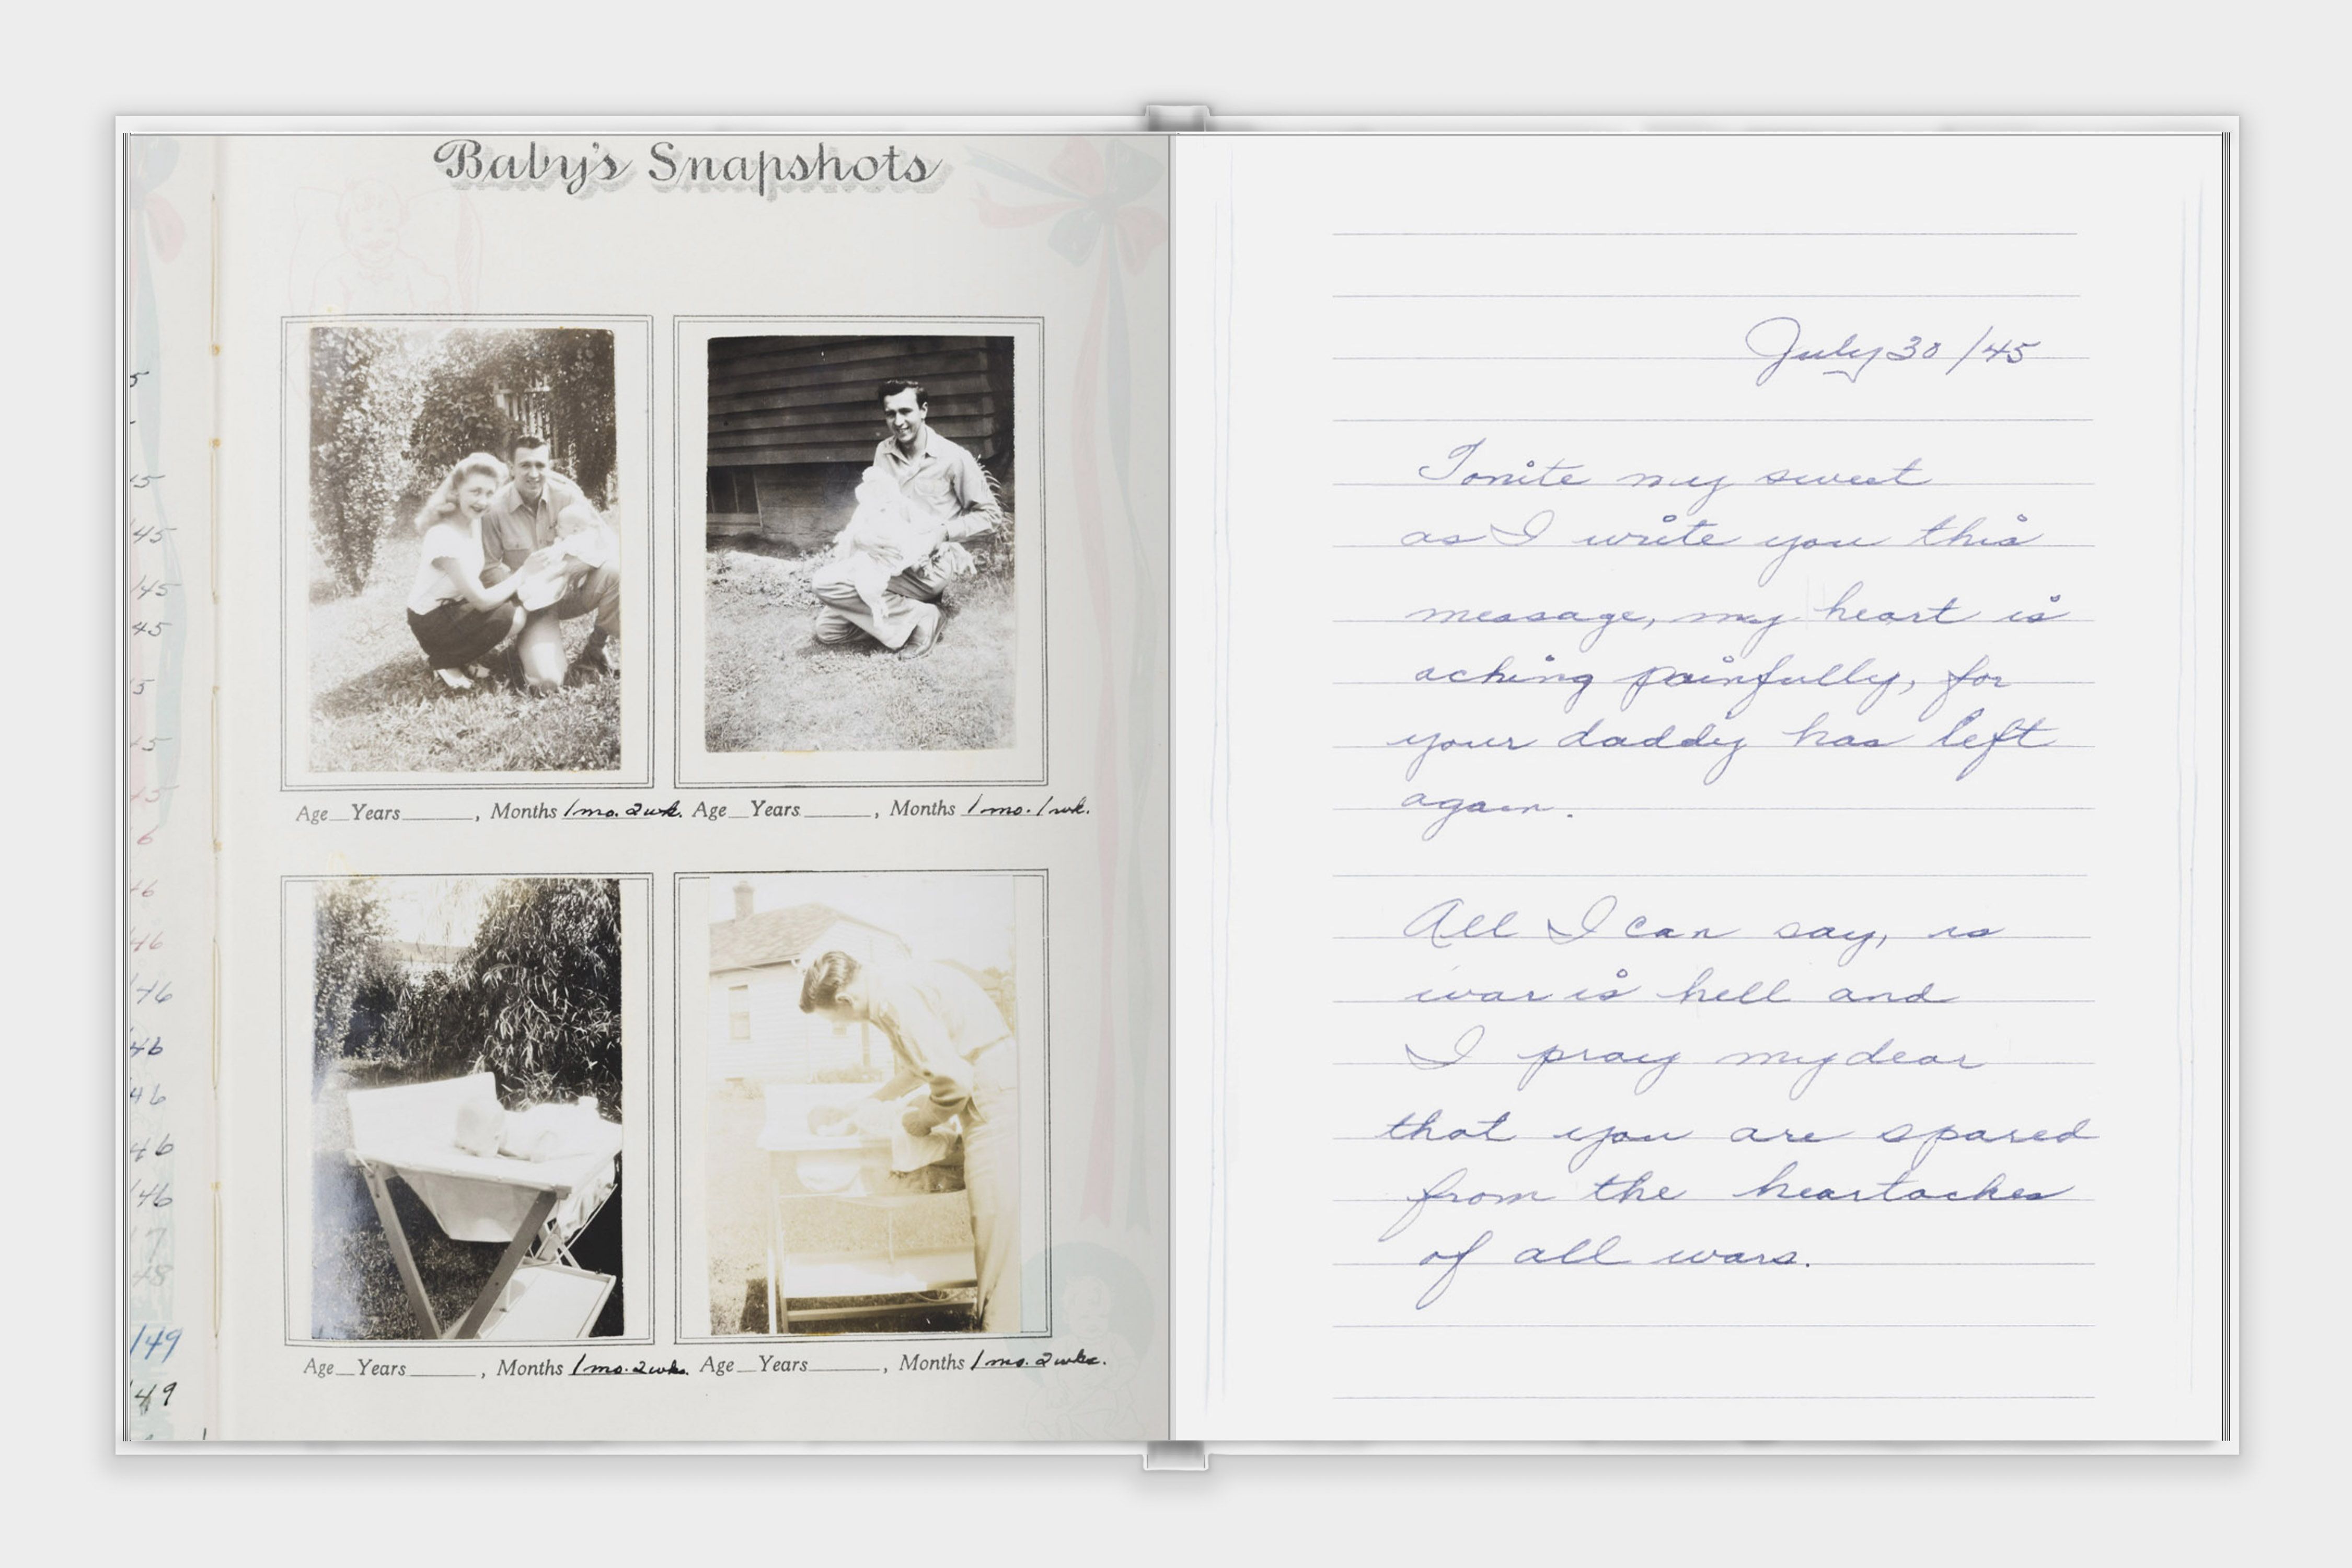 Baby's Snapshots
5
15
/45
/45
45
5
15
15
6
/6
46
/46
46
46
46
/46
7
48
/49
49
Age Years , Months 1 mo. 2 wk. Age Years , Months 1 mo. 1 wk.
Age Years , Months 1 mo. 2 wks. Age Years , Months 1 mo. 2 wks.
July 30 /45
Tonite my sweet
as I write you this
message, my heart is
aching painfully, for
your daddy has left
again.
All I can say, is
war is hell and
I pray my dear
that you are spared
from the heartaches
of all wars.